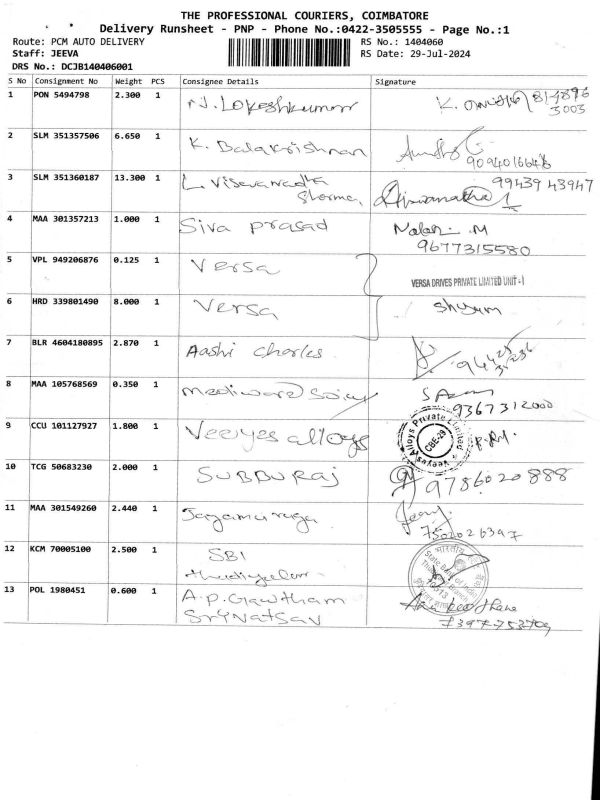 THE PROFESSIONAL COURIERS, COIMBATORE
Delivery Runsheet - PNP - Phone No.:0422-3505555 - Page No.:1
Route: PCM AUTO DELIVERY
RS No.: 1404060
Staff: JEEVA
RS Date: 29-Jul-2024
DRS No.: DCJB140406001
S No Consignment No Weight PCS Consignee Details Signature
1 PON 5494798 2.300 1 Lokeshkumar K.
3003
2 SLM 351357506 6.650 1 K. Balakrishnan
3 SLM 351360187 13.300 1 L. Viswanatha 99439 43947
Sharma, Viswanatha
4 MAA 301357213 1.000 1 Siva prasad M
9677315580
5 VPL 949206876 0.125 1 Versa VERSA DRIVES PRIVATE LIMITED UNIT-I
6 HRD 339801490 8.000 1 Versa Shyam
7 BLR 4604180895 2.870 1 Aashi charles
8 MAA 105768569 0.350 1
9367312000
9 CCU 101127927 1.800 1 Veeyes alloys Veeyes Alloys Private Limited CBE-29
10 TCG 50683230 2.000 1 SUBBURAJ 9786020888
11 MAA 301549260 2.440 1 Jayamuruga
7502026397
12 KCM 70005100 2.500 1 SBI State Bank of India
13 POL 1980451 0.600 1 A.P. Gowtham
Srivatsav